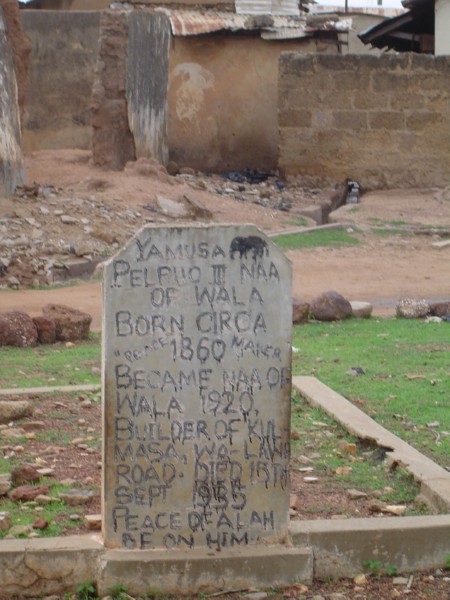 YAMUSA
PELPUO III NAA
OF WALA
BORN CIRCA
"PEACE 1860 MAKER
BECAME NAA OF
WALA 1920,
BUILDER OF KUL
MASA, WA-LAWE
ROAD. DIED 15TH
SEPT.
PEACE OF ALAH
BE ON HIM